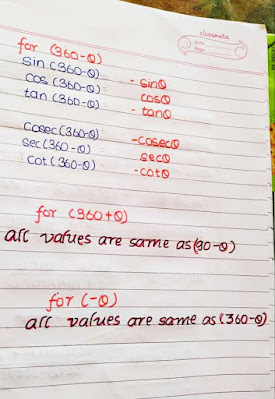 classmate
Date
Page
for (360-θ)
sin (360-θ) - sinθ
cos (360-θ) cosθ
tan (360-θ) - tanθ
Cosec (360-θ) -cosecθ
sec (360-θ) secθ
cot (360-θ) -cotθ
for (360+θ)
all values are same as (90-θ)
for (-θ)
all values are same as (360-θ)